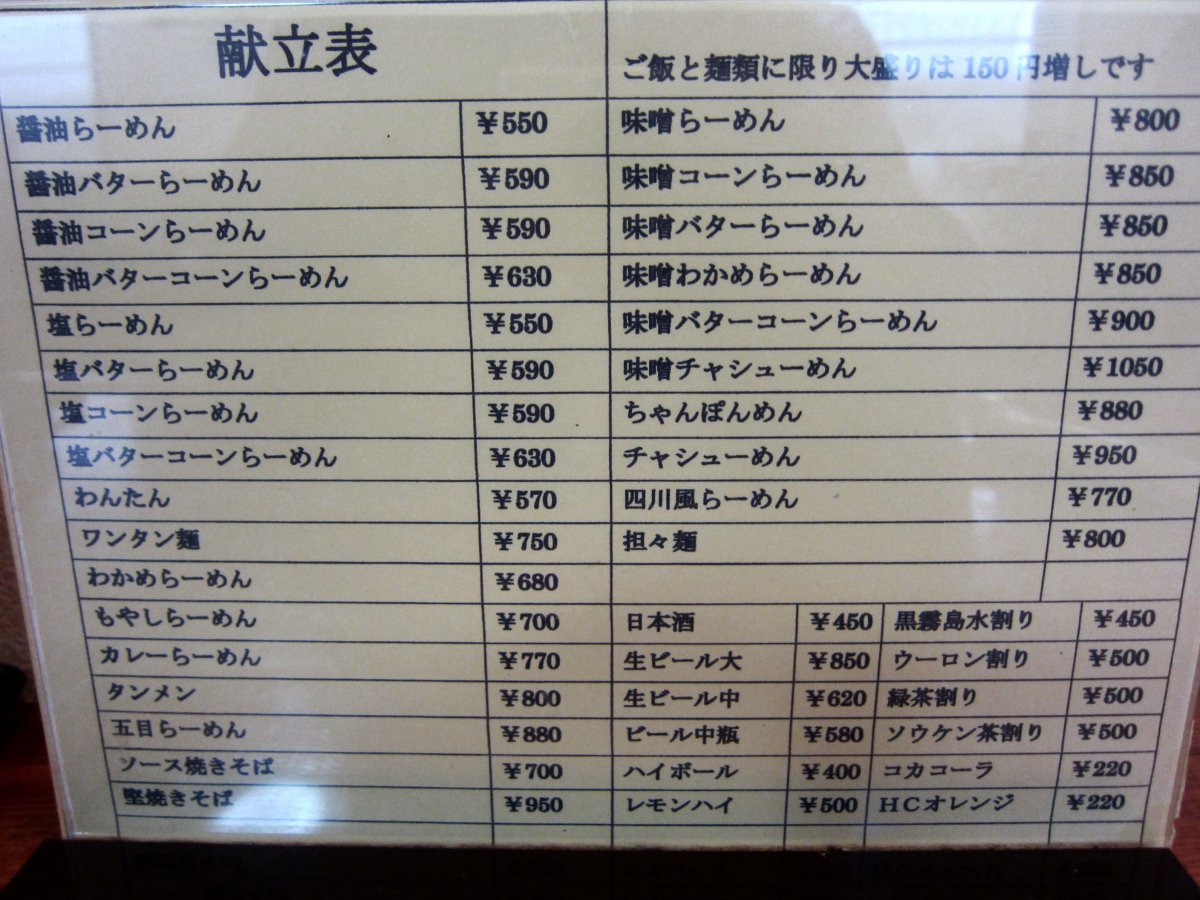 献立表
ご飯と麺類に限り大盛りは150円増しです
醤油らーめん ¥550
醤油バターらーめん ¥590
醤油コーンらーめん ¥590
醤油バターコーンらーめん ¥630
塩らーめん ¥550
塩バターらーめん ¥590
塩コーンらーめん ¥590
塩バターコーンらーめん ¥630
わんたん ¥570
ワンタン麺 ¥750
わかめらーめん ¥680
もやしらーめん ¥700
カレーらーめん ¥770
タンメン ¥800
五目らーめん ¥880
ソース焼きそば ¥700
堅焼きそば ¥950
味噌らーめん ¥800
味噌コーンらーめん ¥850
味噌バターらーめん ¥850
味噌わかめらーめん ¥850
味噌バターコーンらーめん ¥900
味噌チャシューめん ¥1050
ちゃんぽんめん ¥880
チャシューめん ¥950
四川風らーめん ¥770
担々麺 ¥800
日本酒 ¥450 黒霧島水割り ¥450
生ビール大 ¥850 ウーロン割り ¥500
生ビール中 ¥620 緑茶割り ¥500
ビール中瓶 ¥580 ソウケン茶割り ¥500
ハイボール ¥400 コカコーラ ¥220
レモンハイ ¥500 HCオレンジ ¥220